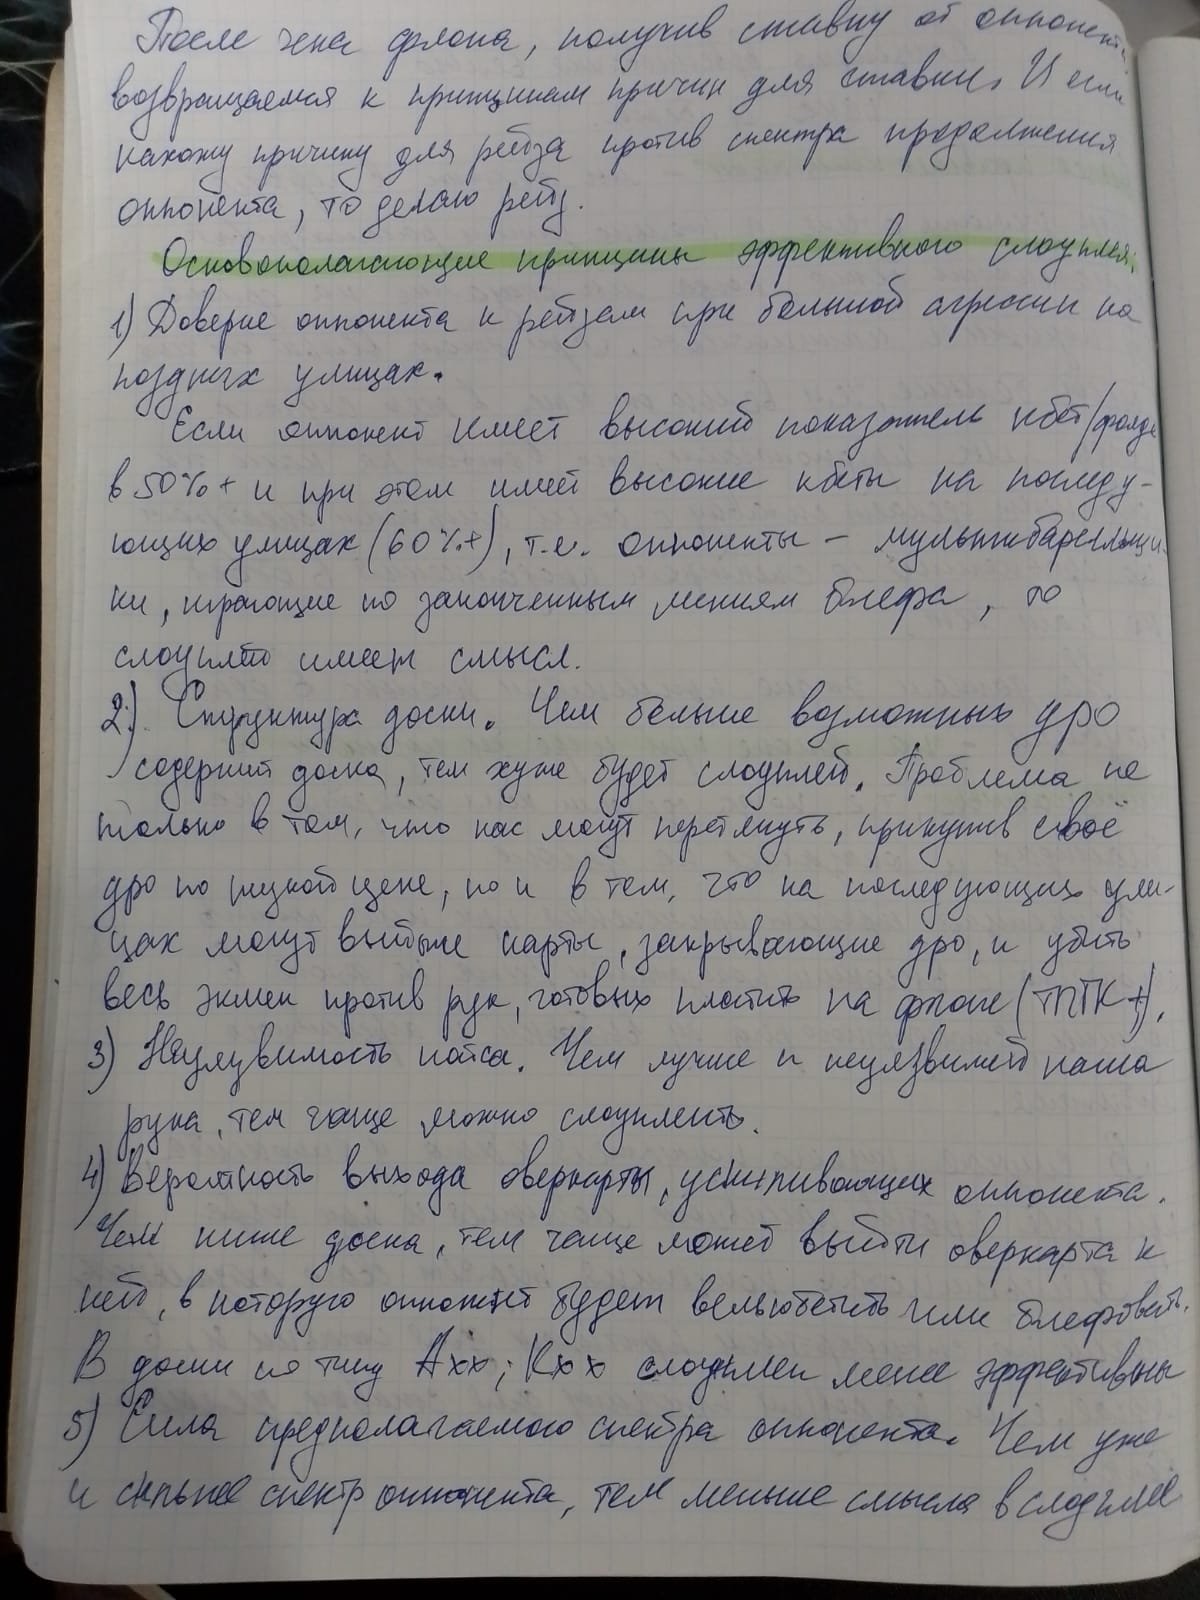 После чека флопа, получив ставку от оппонента
возвращаемся к принципам причин для ставки. И если
нахожу причину для рейза против спектра продолжения
оппонента, то делаю рейз.
Основополагающие принципы эффективного слоуплея:
1) Доверие оппонента к рейзам при большой агрессии на
поздних улицах.
Если оппонент имеет высокий показатель кбет/фолд
в 50%+ и при этом имеет высокие кбеты на последу-
ющих улицах (60%+), т.е. оппоненты – мультибарельщи-
ки, играющие по законченным линиям блефа, то
слоуплей имеет смысл.
2) Структура доски. Чем больше возможных дро
содержит доска, тем хуже будет слоуплей. Проблема не
только в том, что нас могут перетянуть, прикупив своё
дро по низкой цене, но и в том, что на последующих ули-
цах могут выйти карты, закрывающие дро, и убить
весь экшен против рук, готовых платить на флопе (ТПТК+).
3) Неуязвимость нашей. Чем лучше и неуязвимей наша
рука, тем чаще можно слоуплеить.
4) Вероятность выхода оверкарты, усиливающих оппонента.
Чем ниже доска, тем чаще может выйти оверкарта к
ней, в которую оппонент будет вельюбетить или блефовать.
В доски по типу Axx; Kxx слоуплеи менее эффективны
5) Сила предполагаемого спектра оппонента. Чем уже
и сильнее спектр оппонента, тем меньше смысла в слоуплее